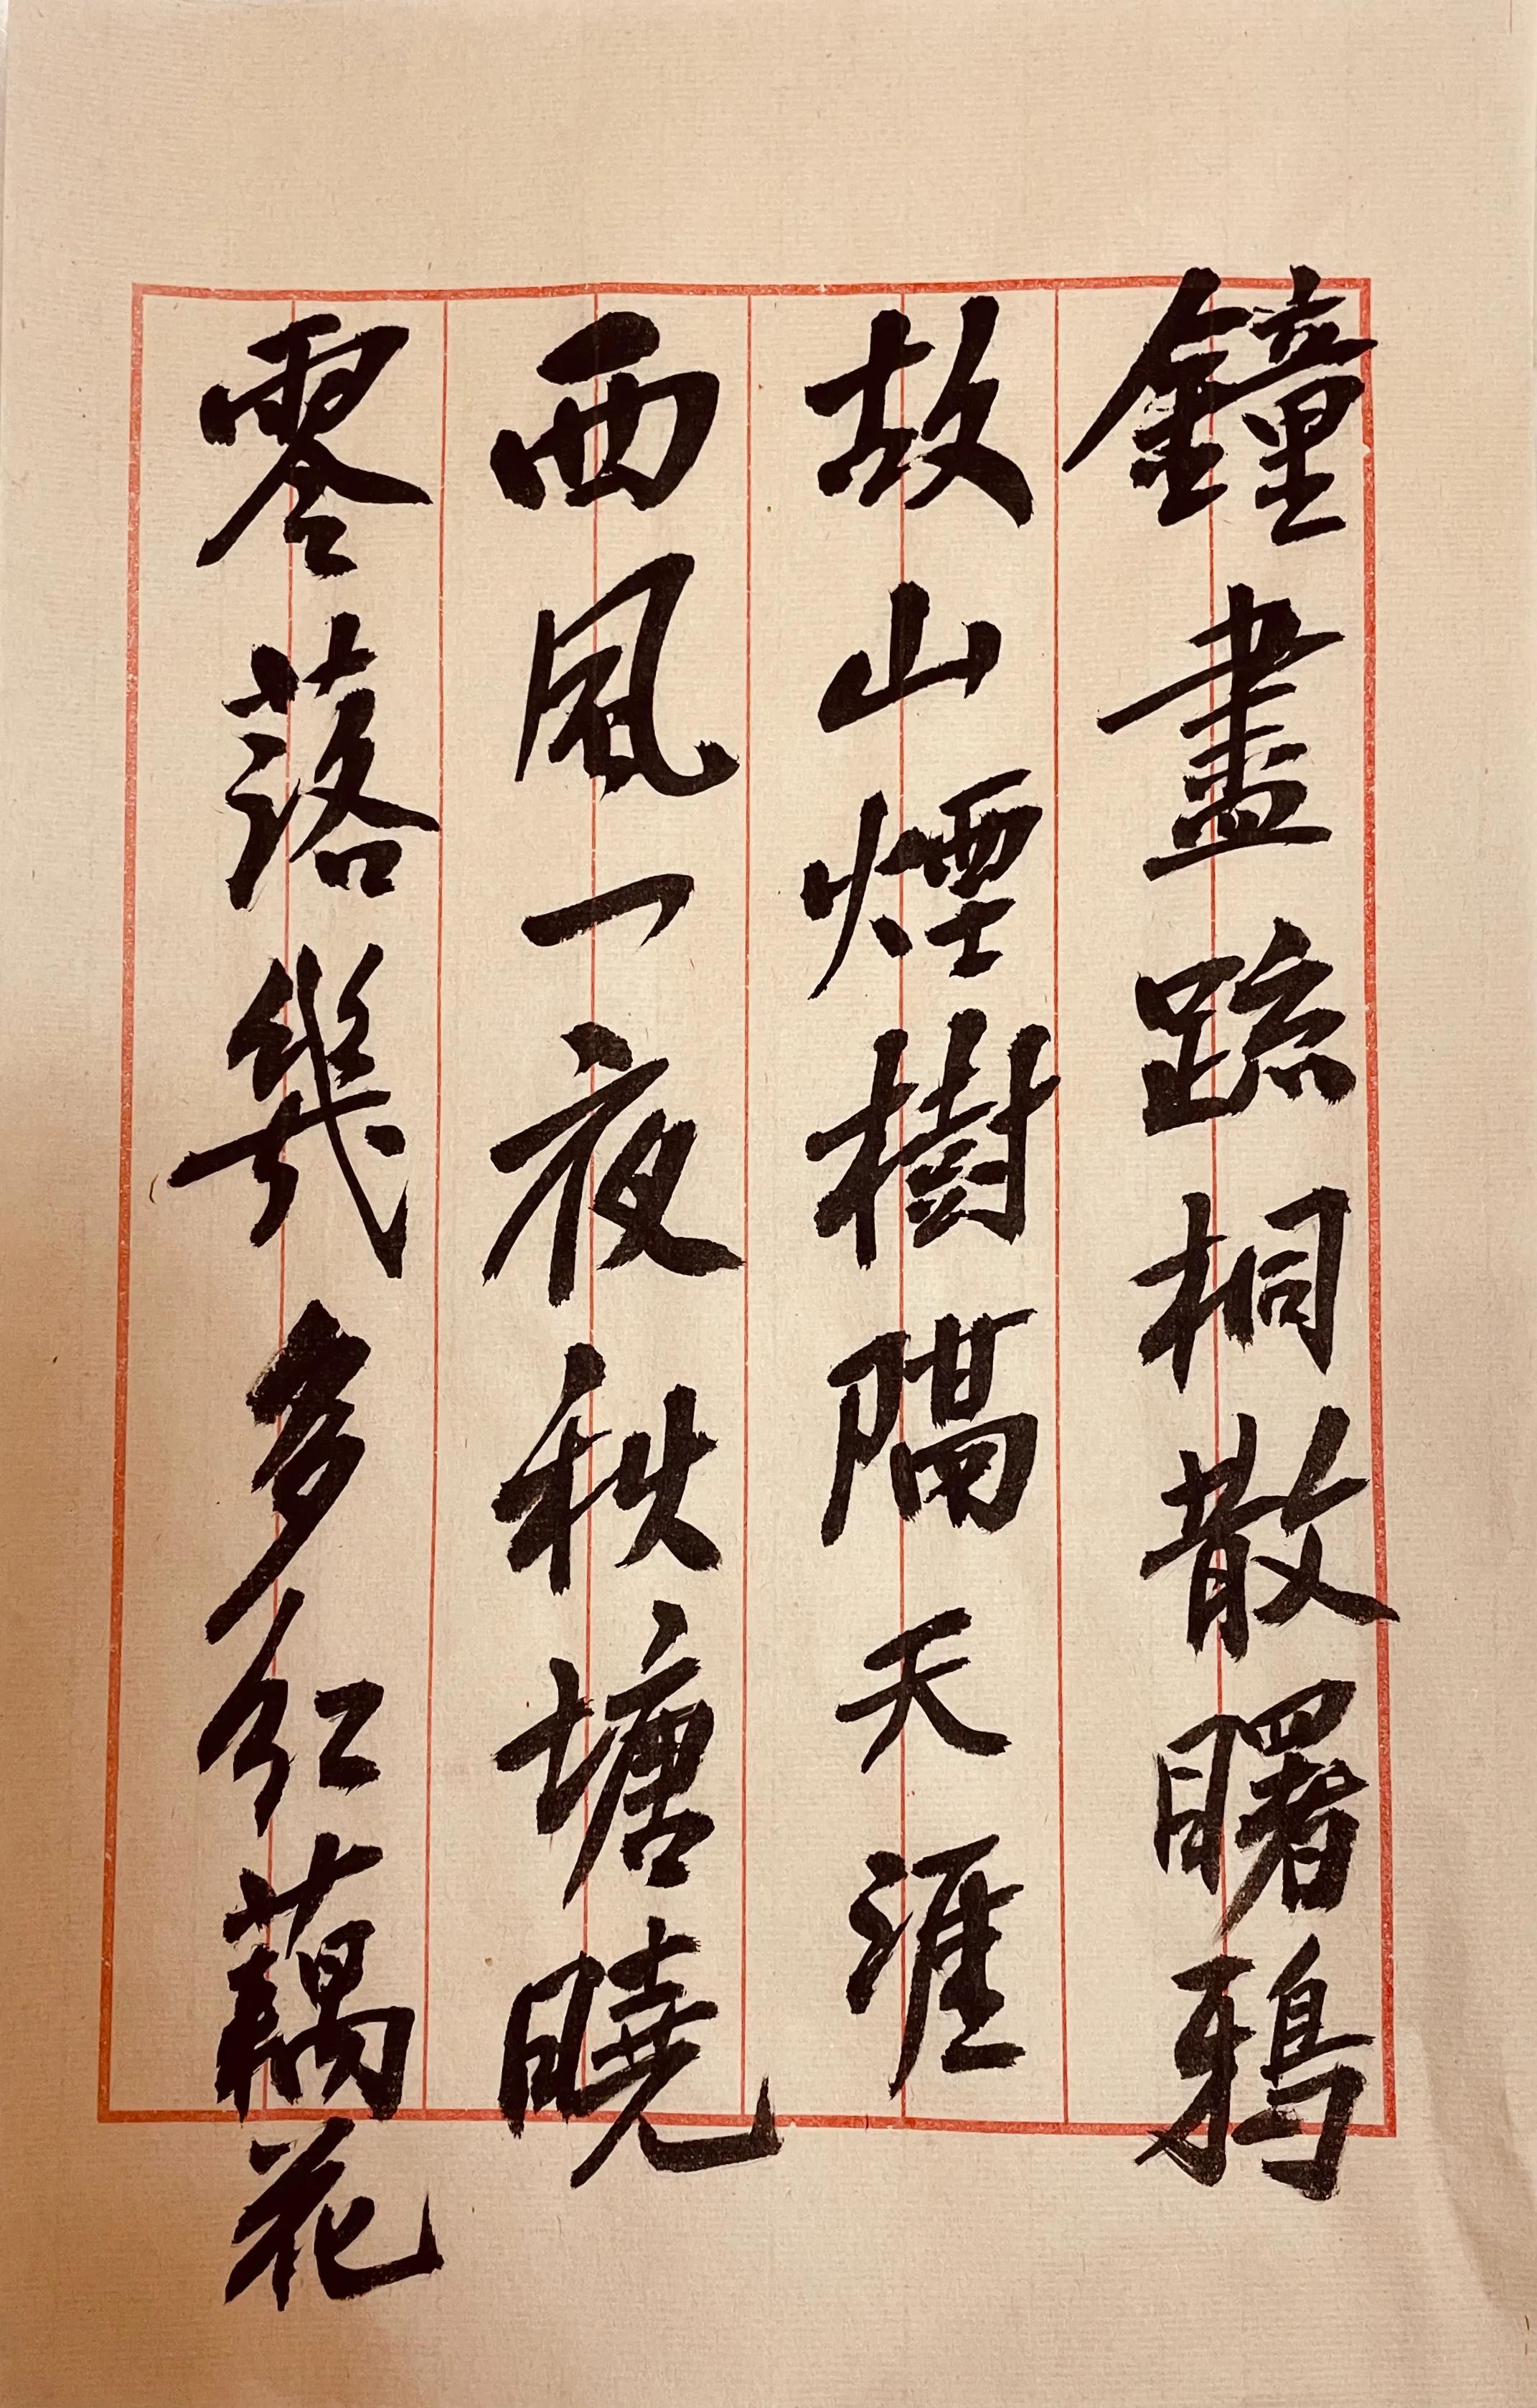 鐘盡疏桐散曙鴉
故山煙樹隔天涯
西風一夜秋塘曉
零落幾多紅藕花